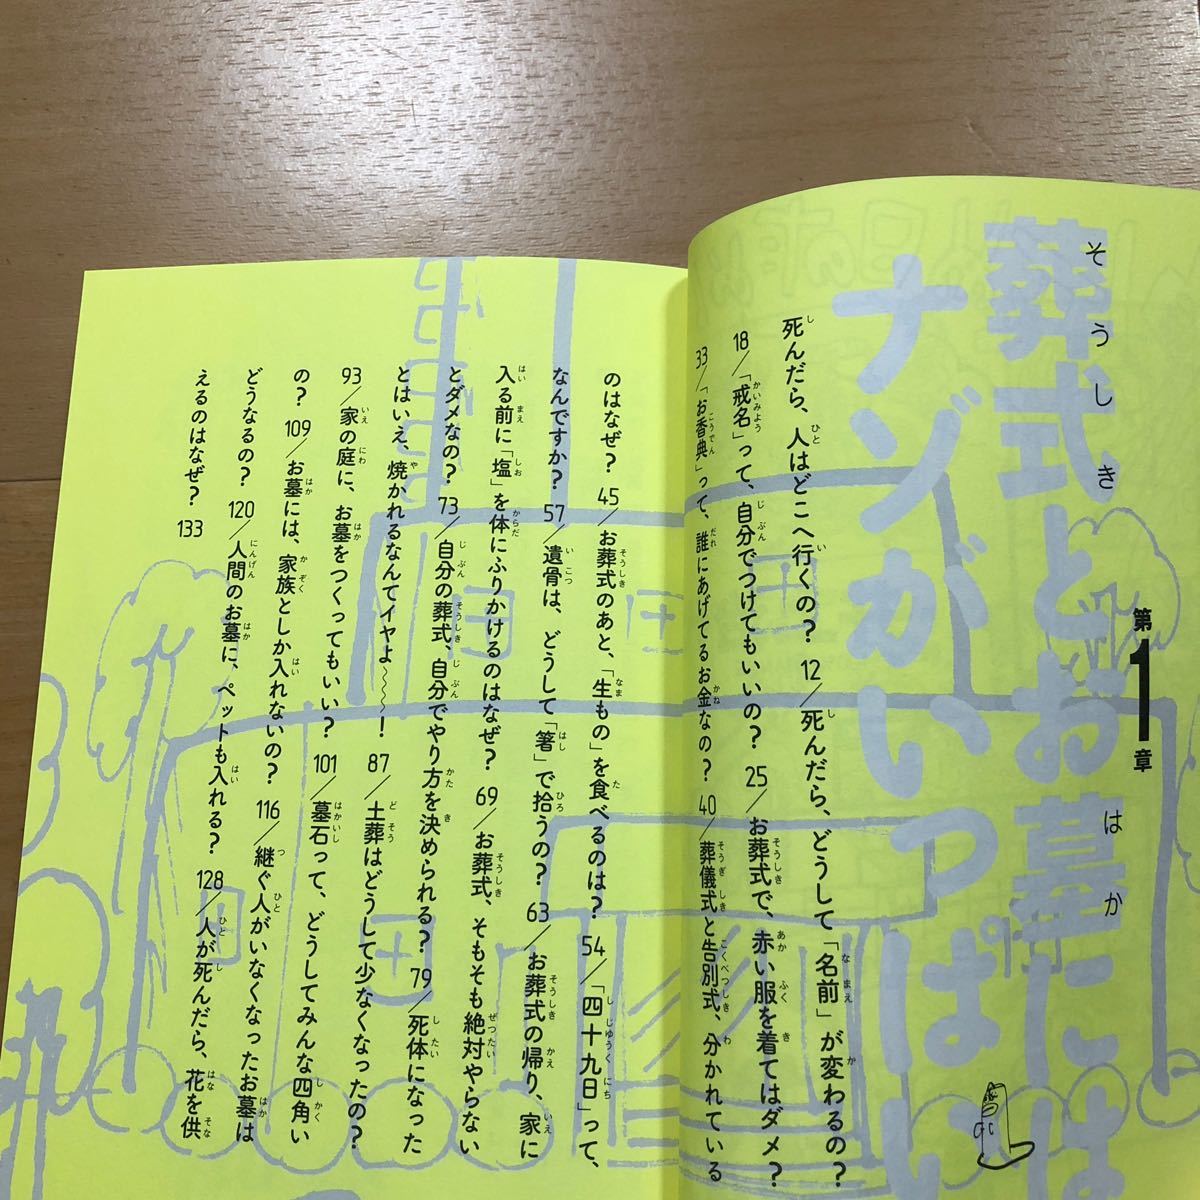 第1章
葬式とお墓には
ナゾがいっぱい
死んだら、人はどこへ行くの? 12/死んだら、どうして「名前」が変わるの?
18/「戒名」って、自分でつけてもいいの? 25/お葬式で、赤い服を着てはダメ?
33/「お香典」って、誰にあげてるお金なの? 40/葬儀式と告別式、分かれている
のはなぜ? 45/お葬式のあと、「生もの」を食べるのは? 54/「四十九日」って、
なんですか? 57/遺骨は、どうして「箸」で拾うの? 63/お葬式の帰り、家に
入る前に「塩」を体にふりかけるのはなぜ? 69/お葬式、そもそも絶対やらない
とダメなの? 73/自分の葬式、自分でやり方を決められる? 79/死体になった
とはいえ、焼かれるなんてイヤよ〜〜〜! 87/土葬はどうして少なくなったの?
93/家の庭に、お墓をつくってもいい? 101/墓石って、どうしてみんな四角い
の? 109/お墓には、家族としか入れないの? 116/継ぐ人がいなくなったお墓は
どうなるの? 120/人間のお墓に、ペットも入れる? 128/人が死んだら、花を供
えるのはなぜ? 133